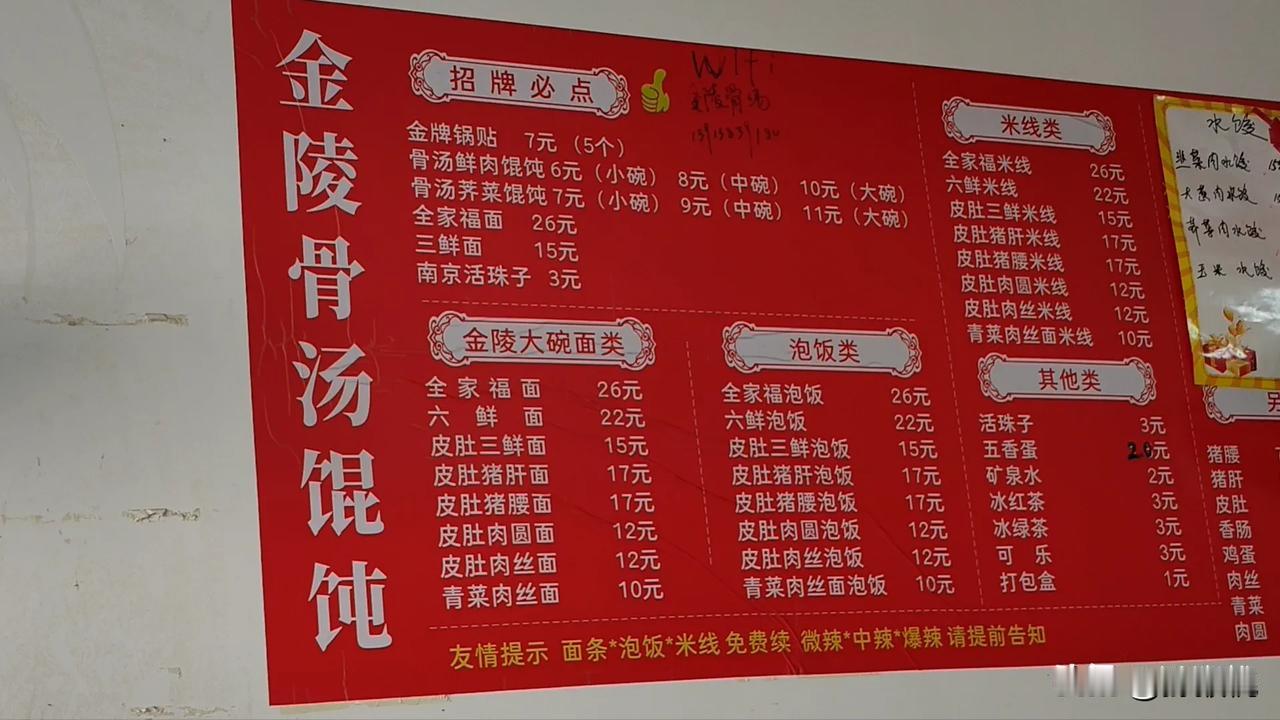 金陵骨汤馄饨
招牌必点
WIFi
金陵骨汤
金牌锅贴 7元（5个）
骨汤鲜肉馄饨 6元（小碗） 8元（中碗） 10元（大碗）
骨汤荠菜馄饨 7元（小碗） 9元（中碗） 11元（大碗）
全家福面 26元
三鲜面 15元
南京活珠子 3元
金陵大碗面类
全家福面 26元
六鲜面 22元
皮肚三鲜面 15元
皮肚猪肝面 17元
皮肚猪腰面 17元
皮肚肉圆面 12元
皮肚肉丝面 12元
青菜肉丝面 10元
泡饭类
全家福泡饭 26元
六鲜泡饭 22元
皮肚三鲜泡饭 15元
皮肚猪肝泡饭 17元
皮肚猪腰泡饭 17元
皮肚肉圆泡饭 12元
皮肚肉丝泡饭 12元
青菜肉丝面泡饭 10元
米线类
全家福米线 26元
六鲜米线 22元
皮肚三鲜米线 15元
皮肚猪肝米线 17元
皮肚猪腰米线 17元
皮肚肉圆米线 12元
皮肚肉丝米线 12元
青菜肉丝面米线 10元
其他类
活珠子 3元
五香蛋 元
矿泉水 2元
冰红茶 3元
冰绿茶 3元
可乐 3元
打包盒 1元
水饺
韭菜肉水饺
大葱肉水饺
荠菜肉水饺
玉米水饺
猪腰
猪肝
皮肚
香肠
鸡蛋
肉丝
青菜
肉圆
友情提示 面条*泡饭*米线 免费续 微辣*中辣*爆辣 请提前告知